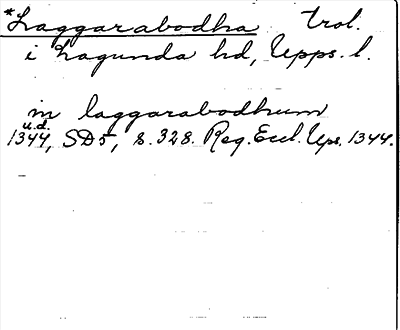 *Laggarabodha trol.
i Lagunda hd, Upps. l.
in laggarabodhum
u.d.
1344, SD5, s. 328. Reg. Eccl. Ups. 1344.